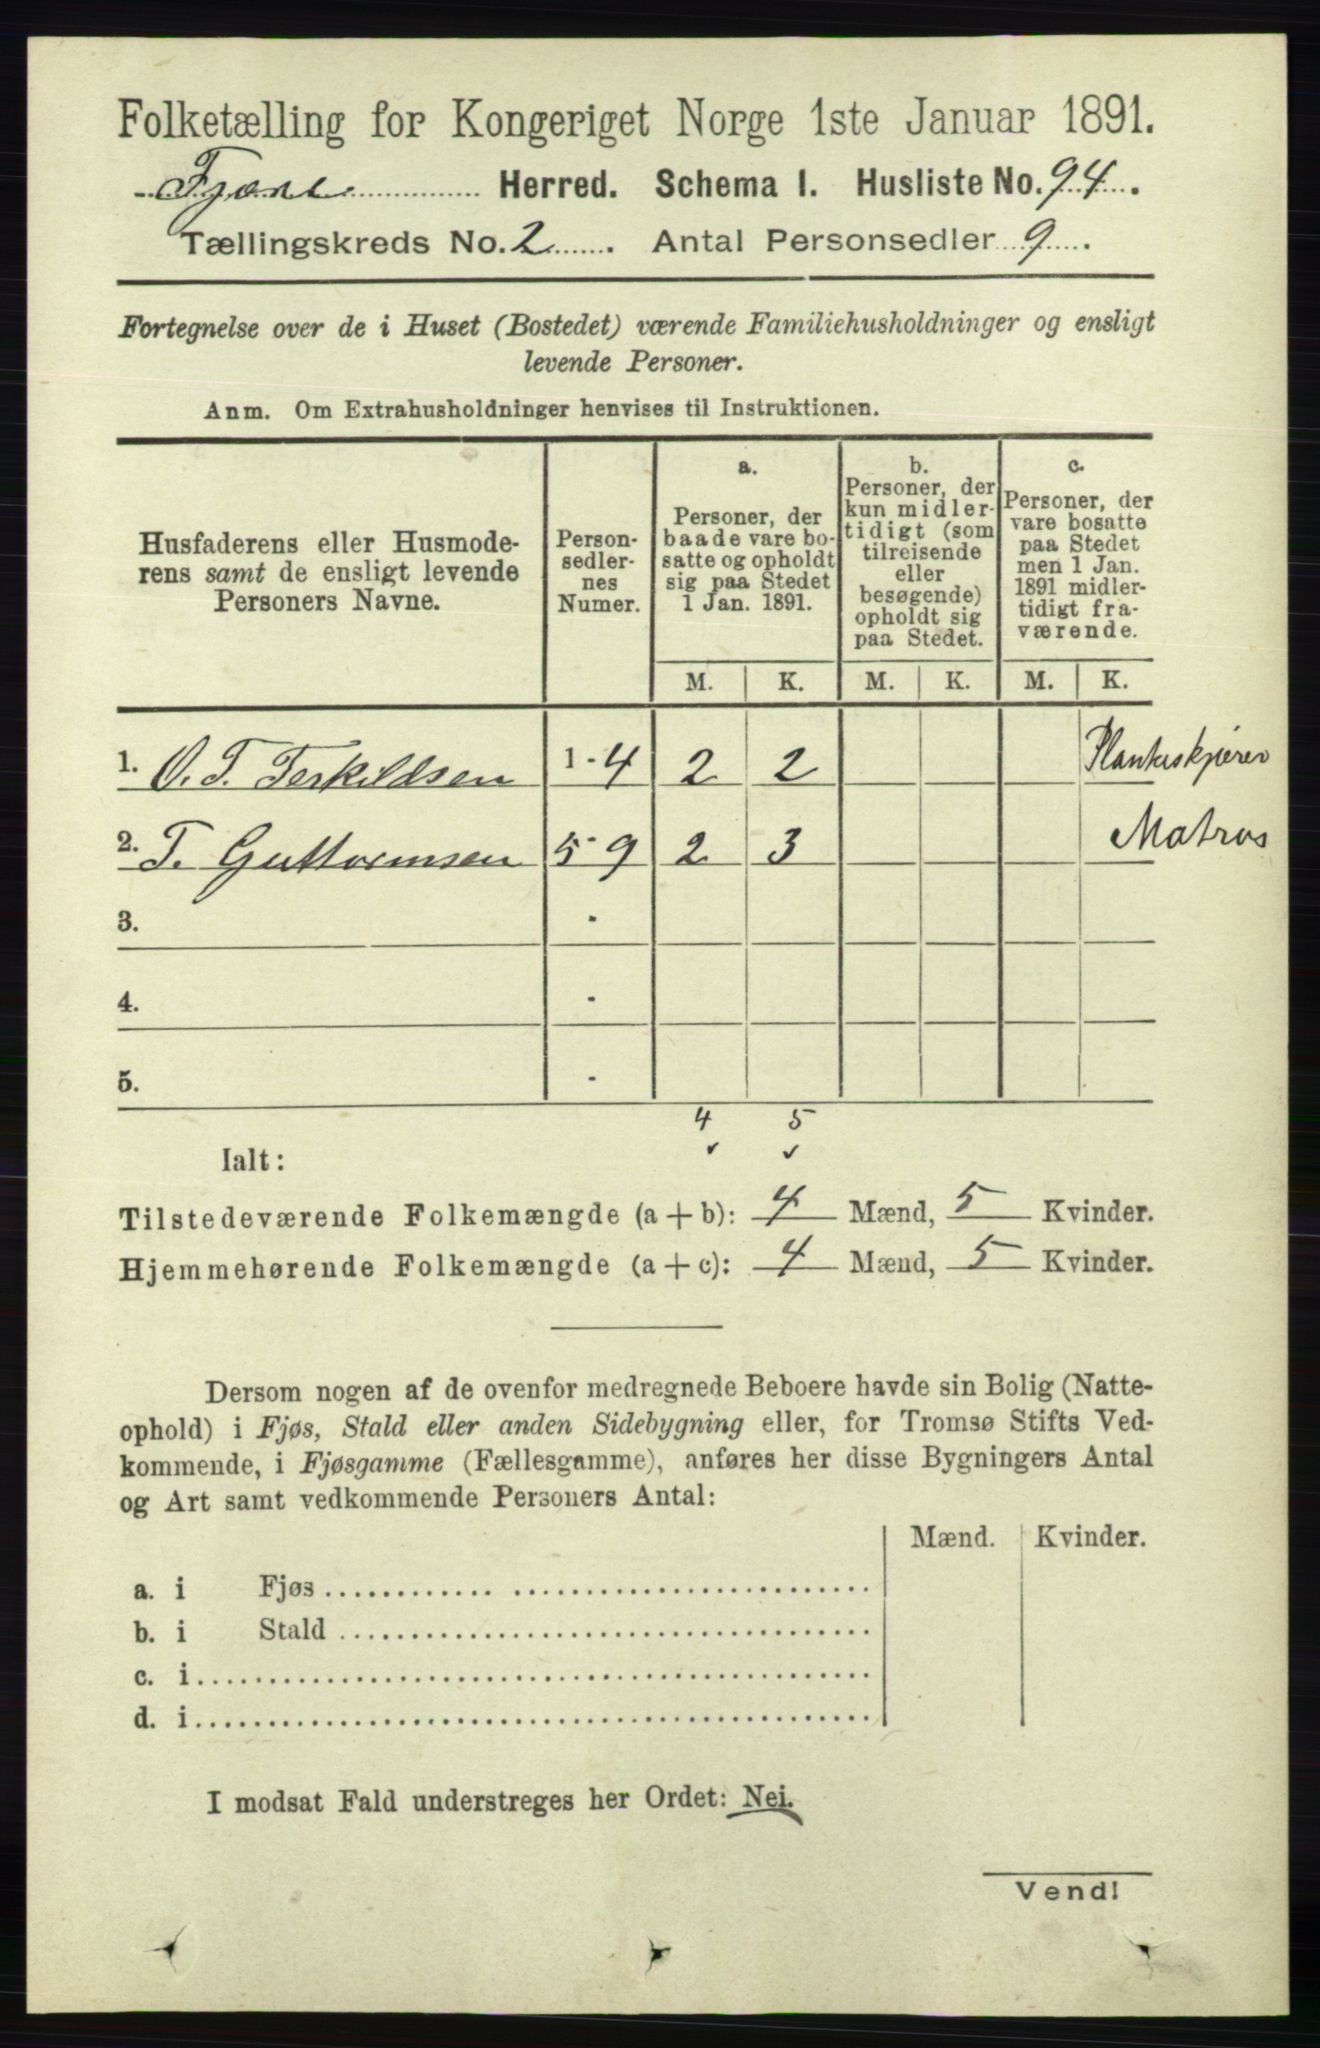 Folketælling for Kongeriget Norge 1ste Januar 1891.
Fjære Herred. Schema 1. Husliste No. 94.
Tællingskreds No. 2. Antal Personsedler 9.
Fortegnelse over de i Huset (Bostedet) værende Familiehusholdninger og ensligt
levende Personer.
Anm. Om Extrahusholdninger henvises til Instruktionen.
Husfaderens eller Husmode-
rens samt de ensligt levende
Personers Navne.
Person-
sedler-
nes
Numer.
a.
Personer, der
baade vare bo-
satte og opholdt
sig paa Stedet
1 Jan. 1891.
b.
Personer, der
kun midler-
tidigt (som
tilreisende
eller
besøgende)
opholdt sig
paa Stedet.
c.
Personer, der
vare bosatte
paa Stedet
men 1 Jan.
1891 midler-
tidigt fra-
værende.
M. K. M. K. M. K.
1. O. T. Terkildsen 1 - 4 2 2 Plankeskjærer
2. T. Guttormsen 5 - 9 2 3 Matros
3. -
4. -
5. -
4 5
✓ ✓
Ialt:
Tilstedeværende Folkemængde (a + b): 4 Mænd, 5 Kvinder.
Hjemmehørende Folkemængde (a + c): 4 Mænd, 5 Kvinder.
Dersom nogen af de ovenfor medregnede Beboere havde sin Bolig (Natte-
ophold) i Fjøs, Stald eller anden Sidebygning eller, for Tromsø Stifts Ved-
kommende, i Fjøsgamme (Fællesgamme), anføres her disse Bygningers Antal
og Art samt vedkommende Personers Antal:
Mænd. Kvinder.
a. i Fjøs
b. i Stald
c. i
d. i
I modsat Fald understreges her Ordet: Nei.
Vend!